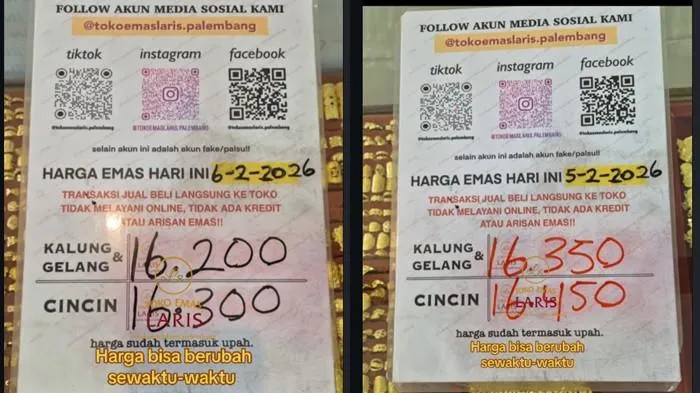 FOLLOW AKUN MEDIA SOSIAL KAMI
@tokoemaslaris.palembang
tiktok instagram facebook
@tokoemaslaris.palembang @TOKOEMASLARIS.PALEMBANG @tokoemaslaris.palembang
selain akun ini adalah akun fake/palsu!!
HARGA EMAS HARI INI 6-2-2026
TRANSAKSI JUAL BELI LANGSUNG KE TOKO
TIDAK MELAYANI ONLINE, TIDAK ADA KREDIT
ATAU ARISAN EMAS!!
KALUNG & GELANG 16.200
CINCIN 16.300
TOKO EMAS
LARIS
harga sudah termasuk upah.
Harga bisa berubah
sewaktu-waktu
FOLLOW AKUN MEDIA SOSIAL KAMI
@tokoemaslaris.palembang
tiktok instagram facebook
@tokoemaslaris.palembang @TOKOEMASLARIS.PALEMBANG @tokoemaslaris.palembang
selain akun ini adalah akun fake/palsu!!
HARGA EMAS HARI INI 5-2-2026
TRANSAKSI JUAL BELI LANGSUNG KE TOKO
TIDAK MELAYANI ONLINE, TIDAK ADA KREDIT
ATAU ARISAN EMAS!!
KALUNG & GELANG 16.350
CINCIN 16.150
TOKO EMAS
LARIS
harga sudah termasuk upah.
Harga bisa berubah
sewaktu-waktu